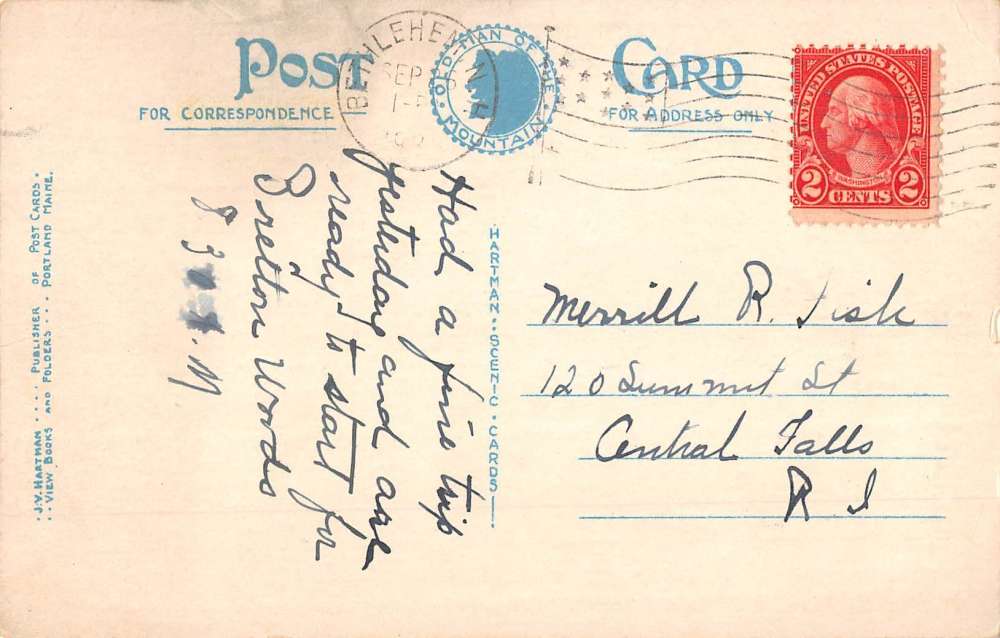 POST CARD
FOR CORRESPONDENCE
FOR ADDRESS ONLY
OLD MAN OF THE
MOUNTAIN
BETHLEHEM
SEP
UNITED STATES POSTAGE
WASHINGTON
2 CENTS 2
Had a fine trip
yesterday and are
ready to start for
Bretton Woods
8 30 . M
HARTMAN SCENIC CARDS
Merrill R. Fisk
120 Summit St
Central Falls
R I
J.V. HARTMAN .... PUBLISHER OF POST CARDS
VIEW BOOKS AND FOLDERS .. PORTLAND MAINE.